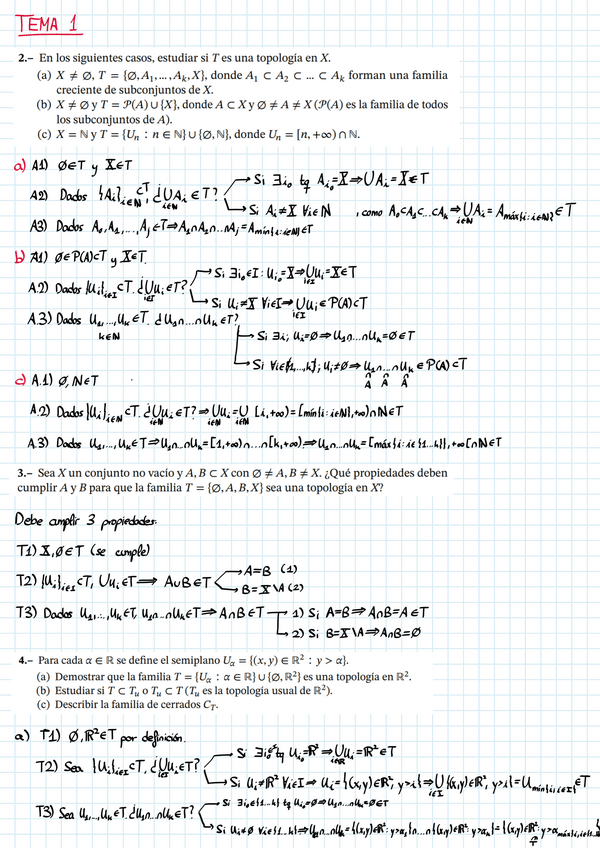 TEMA 1
2.– En los siguientes casos, estudiar si T es una topología en X.
(a) X ≠ ∅, T = {∅, A₁, ..., Aₖ, X}, donde A₁ ⊂ A₂ ⊂ ... ⊂ Aₖ forman una familia
creciente de subconjuntos de X.
(b) X ≠ ∅ y T = 𝒫(A) ∪ {X}, donde A ⊂ X y ∅ ≠ A ≠ X (𝒫(A) es la familia de todos
los subconjuntos de A).
(c) X = ℕ y T = {Uₙ : n ∈ ℕ} ∪ {∅, ℕ}, donde Uₙ = [n, +∞) ∩ ℕ.
a) A1) ∅∈T y X∈T
A2) Dados {Ai}i∈N ⊂T ¿∪Ai ∈T? i∈N → Si ∃i₀ tq Ai₀=X ⇒ ∪Ai=X∈T
→ Si Ai≠X ∀i∈N , como A₀⊂A₁⊂...⊂Aₖ ⇒ ∪Ai = Amáx{i:i∈N} ∈T i∈N
A3) Dados A₀,A₁,...,Aj ∈T ⇒ A₀∩A₁∩..∩Aj = Amín{i:i∈N} ∈T
b) A1) ∅∈P(A)⊂T y X∈T.
A.2) Dados {Ui}i∈I ⊂T. ¿∪Ui∈T? i∈I → Si ∃i₀∈I: Ui₀=X ⇒ ∪Ui=X∈T i∈I
→ Si Ui≠X ∀i∈I ⇒ ∪Ui∈P(A)⊂T i∈I
A.3) Dados U₁,...,Uₖ∈T. ¿U₁∩...∩Uₖ∈T?
k∈N → Si ∃i; Ui=∅ ⇒ U₁∩...∩Uₖ=∅∈T
→ Si ∀i∈{1,...,k}; Ui≠∅ ⇒ U₁∩...∩Uₖ ∈ P(A)⊂T
c) A.1) ∅,N∈T
A.2) Dados {Ui}i∈N ⊂T. ¿∪Ui∈T? ⇒ ∪Ui=∪ [i,+∞) = [mín{i:i∈N},+∞)∩N∈T
A.3) Dados U₁,...,Uₖ∈T ⇒ U₁∩...∩Uₖ=[1,+∞)∩...∩[k,+∞) ⇒ U₁∩...∩Uₖ = [máx{i:i∈{1...k}},+∞[∩N∈T
3.– Sea X un conjunto no vacío y A, B ⊂ X con ∅ ≠ A, B ≠ X. ¿Qué propiedades deben
cumplir A y B para que la familia T = {∅, A, B, X} sea una topología en X?
Debe cumplir 3 propiedades:
T1) X,∅∈T (se cumple)
T2) {Ui}i∈I ⊂T, ∪Ui∈T ⇒ A∪B∈T → A=B (1)
→ B=X\A (2)
T3) Dados U₁,...,Uₖ∈T, U₁∩..∩Uₖ∈T ⇒ A∩B∈T → 1) Si A=B ⇒ A∩B=A∈T
→ 2) Si B=X\A ⇒ A∩B=∅
4.– Para cada α ∈ ℝ se define el semiplano Uα = {(x, y) ∈ ℝ² : y > α}.
(a) Demostrar que la familia T = {Uα : α ∈ ℝ} ∪ {∅, ℝ²} es una topología en ℝ².
(b) Estudiar si T ⊂ Tᵤ o Tᵤ ⊂ T (Tᵤ es la topología usual de ℝ²).
(c) Describir la familia de cerrados C_T.
a) T1) ∅,ℝ²∈T por definición.
T2) Sea {Ui}i∈I ⊂T, ¿∪Ui∈T? i∈I → Si ∃i₀ tq Ui₀=ℝ² ⇒ ∪Ui=ℝ²∈T
→ Si Ui≠ℝ² ∀i∈I ⇒ Ui={(x,y)∈ℝ²; y>i} ⇒ ∪{(x,y)∈ℝ², y>i}=Umín{i,i∈I} ∈T i∈I
T3) Sea U₁,...,Uₖ∈T. ¿U₁∩...∩Uₖ∈T? → Si ∃i₀∈{1...k} tq Ui₀=∅ ⇒ U₁∩...∩Uₖ=∅∈T
→ Si Ui≠∅ ∀i∈{1...k} ⇒ U₁∩...∩Uₖ={(x,y)∈ℝ²: y>α₁}∩...∩{(x,y)∈ℝ²: y>αₖ}={(x,y)∈ℝ²: y>αmáx{i,i∈{1...